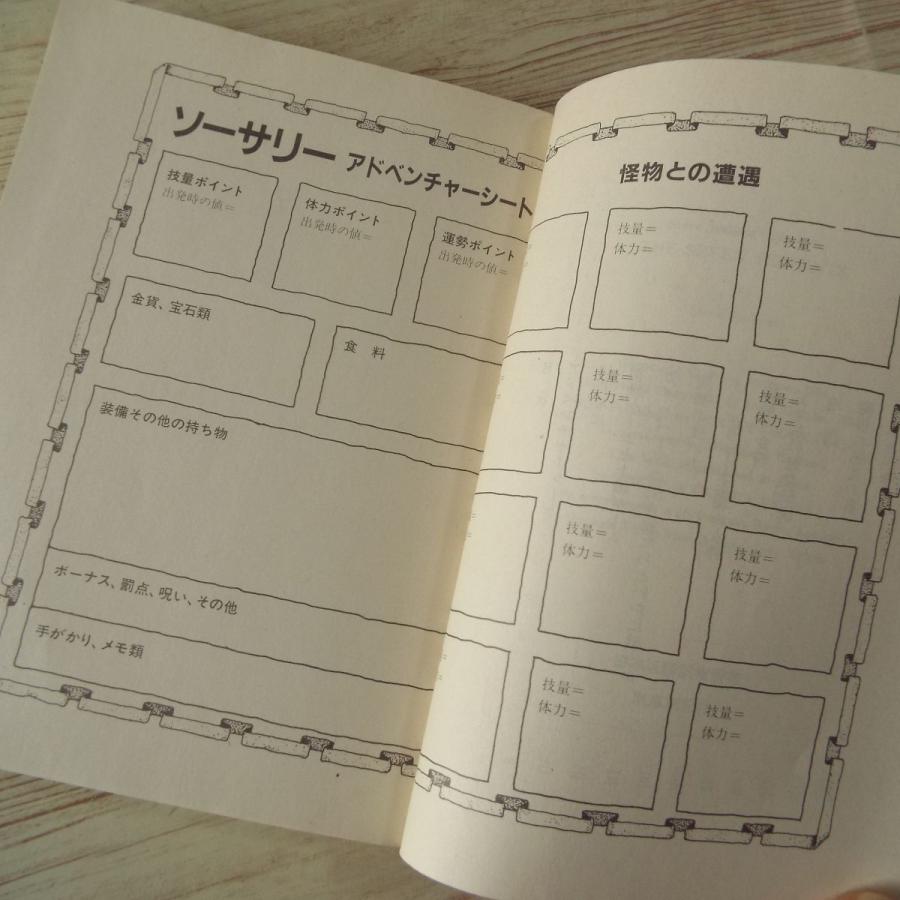 ソーサリー アドベンチャーシート
技量ポイント
出発時の値＝
体力ポイント
出発時の値＝
運勢ポイント
出発時の値＝
金貨、宝石類
食　料
装備その他の持ち物
ボーナス、罰点、呪い、その他
手がかり、メモ類
怪物との遭遇
技量＝
体力＝
技量＝
体力＝
技量＝
体力＝
技量＝
体力＝
技量＝
体力＝
技量＝
体力＝
技量＝
体力＝
技量＝
体力＝